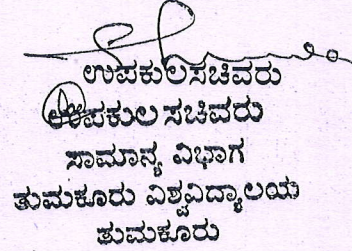 ಉಪಕುಲಸಚಿವರು
ಉಪಕುಲಸಚಿವರು
ಸಾಮಾನ್ಯ ವಿಭಾಗ
ತುಮಕೂರು ವಿಶ್ವವಿದ್ಯಾಲಯ
ತುಮಕೂರು